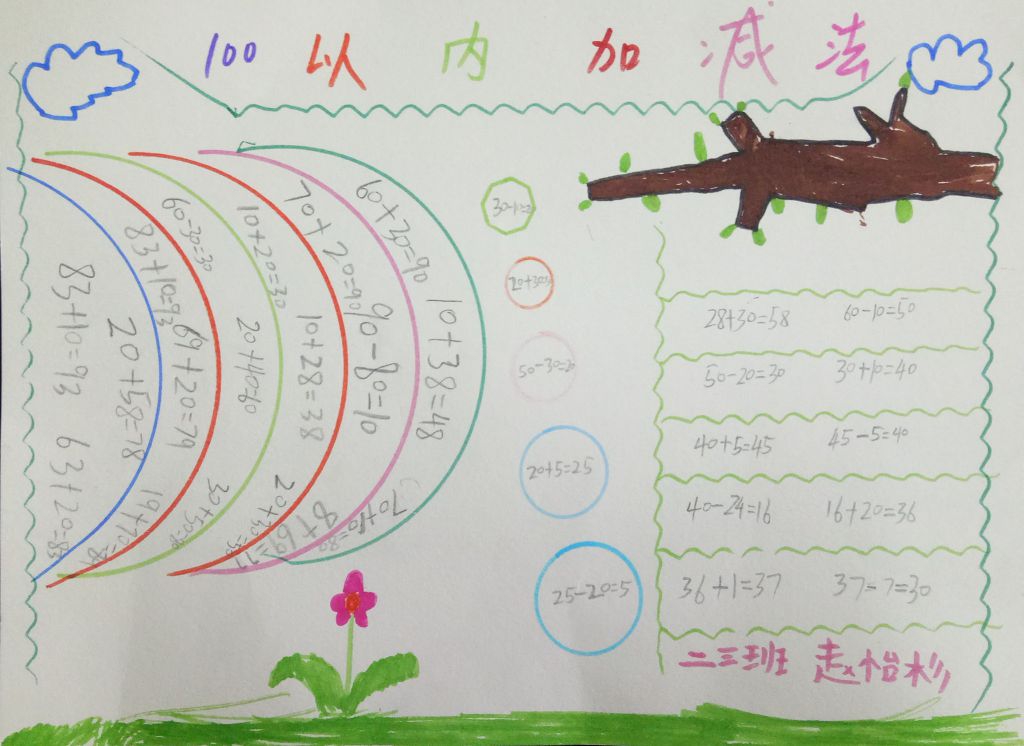 100以内加减法
83+10=93 63+20=83
20+58=78
83+10=93
69+20=79
19+70=89
60-30=30
10+20=30
20+40=60
30+50=80
70+20=90
10+28=38
60+20=90
90-80=10
8+69=77
10+38=48
70+10=80
30-10=2
50-30=20
20+5=25
25-20=5
28+30=58 60-10=50
50-20=30 30+10=40
40+5=45 45-5=40
40-24=16 16+20=36
36+1=37 37-7=30
二三班 赵怡杉